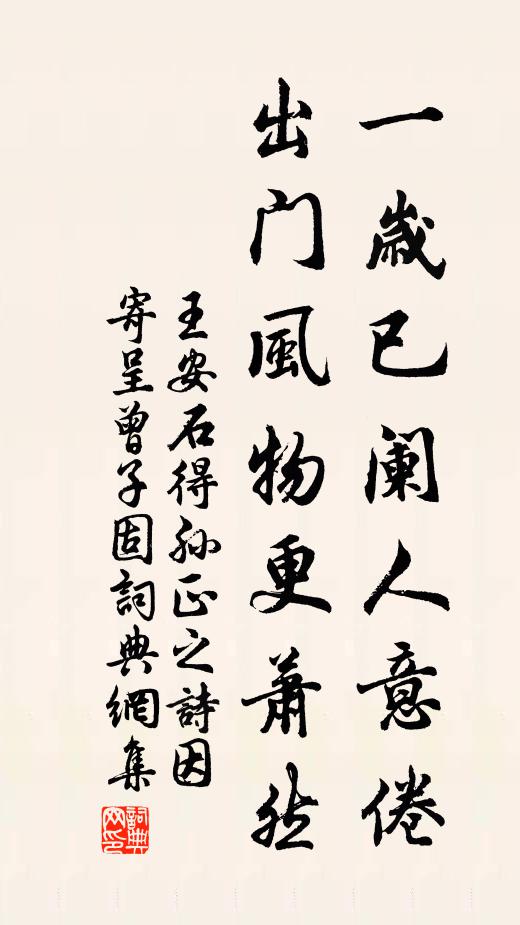 一歲已阑人意倦
出门風物更蕭然
王安石得孙正之詩因
寄呈曾子固詞典網集
詞典
网印